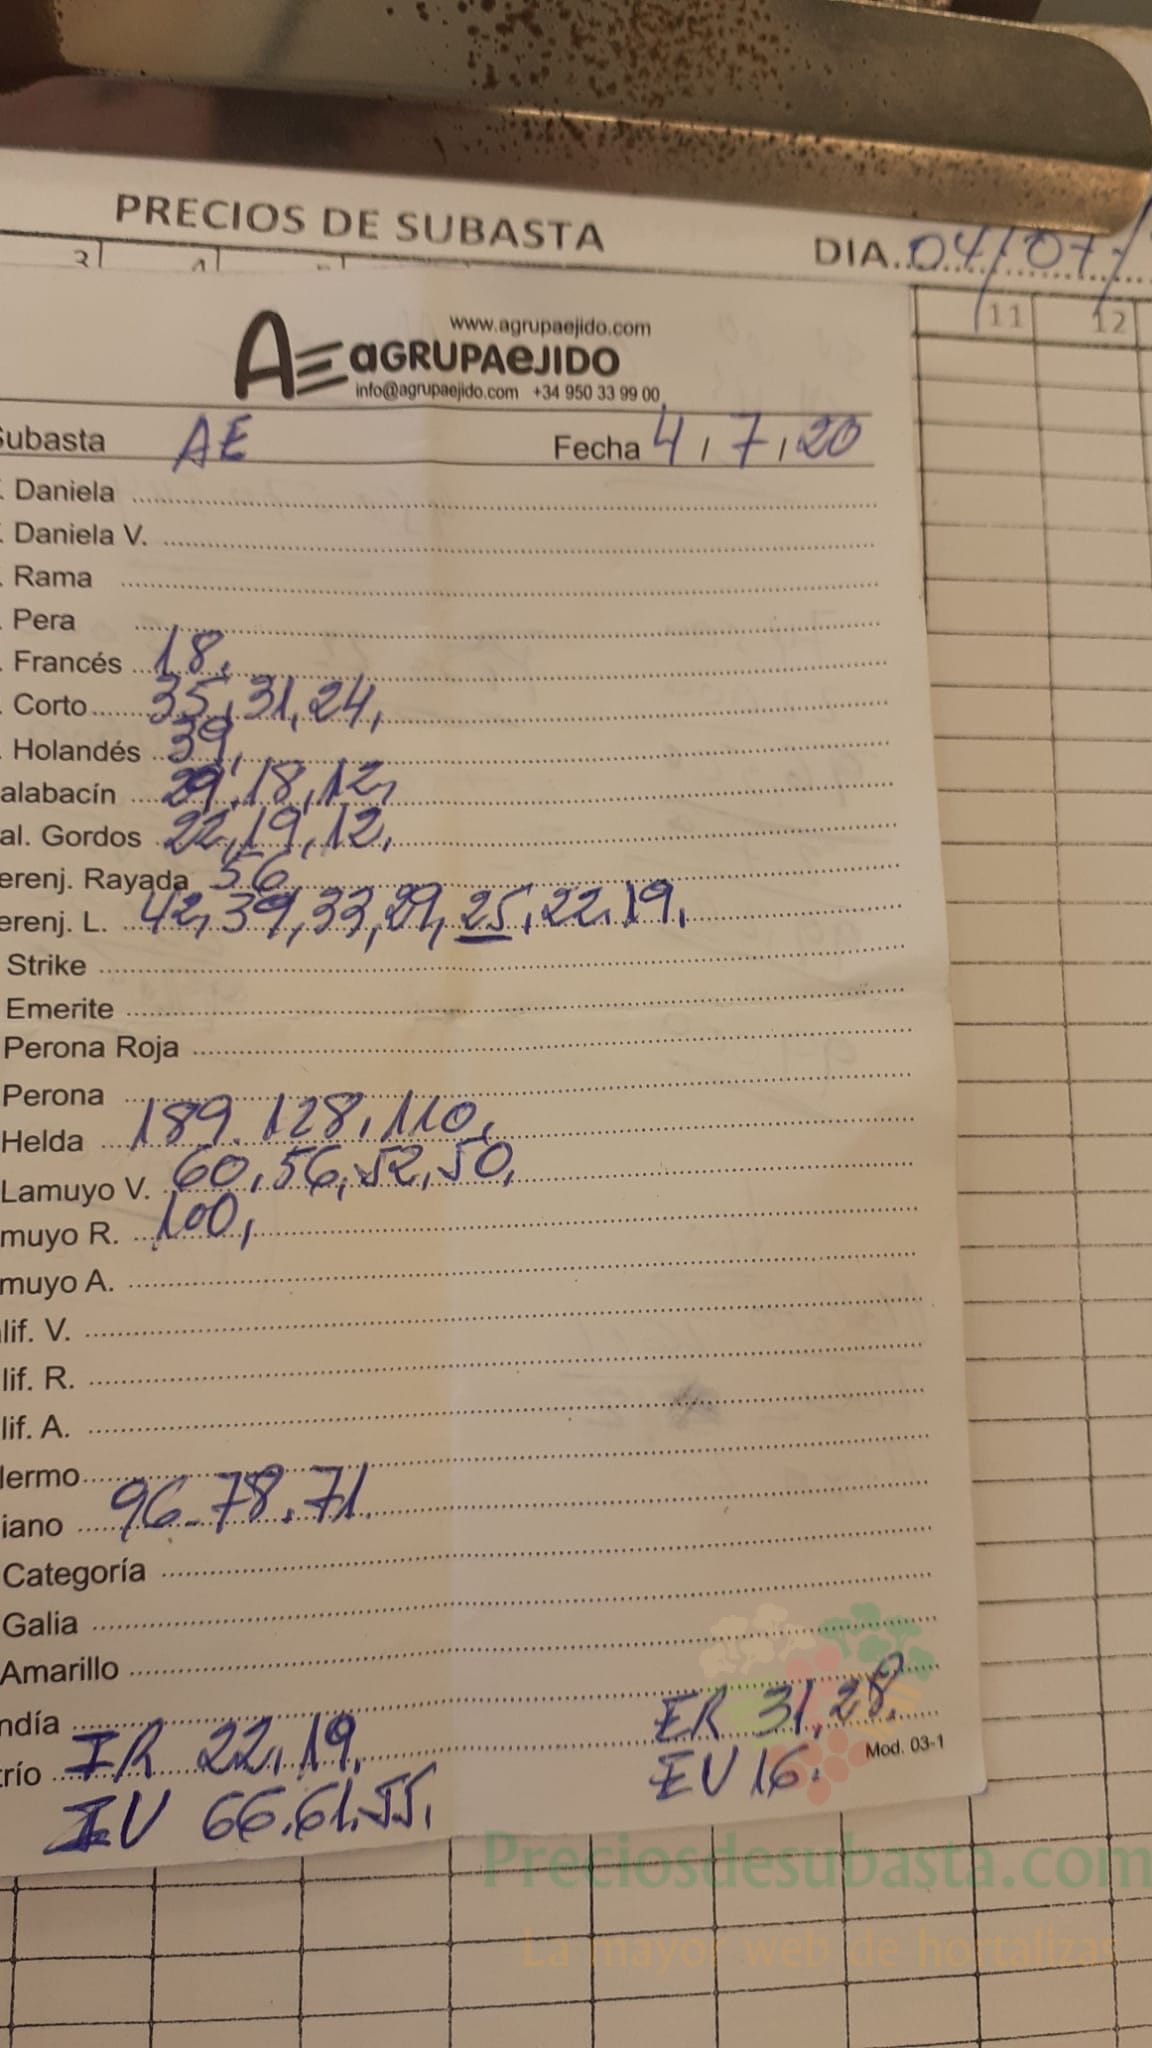 PRECIOS DE SUBASTA DIA. 04/07/
3 4 11 12
www.agrupaejido.com
AE aGRUPAeJIDO
info@agrupaejido.com +34 950 33 99 00
Subasta AE Fecha 4 / 7 / 20
. Daniela
. Daniela V.
. Rama
. Pera
. Francés 18.
. Corto 35, 31, 24,
. Holandés 39,
alabacín 29, 18, 12,
al. Gordos 22, 19, 12,
erenj. Rayada 56
erenj. L. 42, 39, 33, 29, 25, 22, 19,
Strike
Emerite
Perona Roja
Perona
Helda 189. 128, 110,
Lamuyo V. 60, 56, 52, 50,
muyo R. 100,
muyo A.
lif. V.
lif. R.
lif. A.
lermo
iano 96. 78. 71.
Categoría
Galia
Amarillo
ndía ER 31, 28.
trío IR 22, 19. EV 16. Mod. 03-1
IV 66. 61. 55,
Preciosdesubasta.com
La mayor web de hortalizas